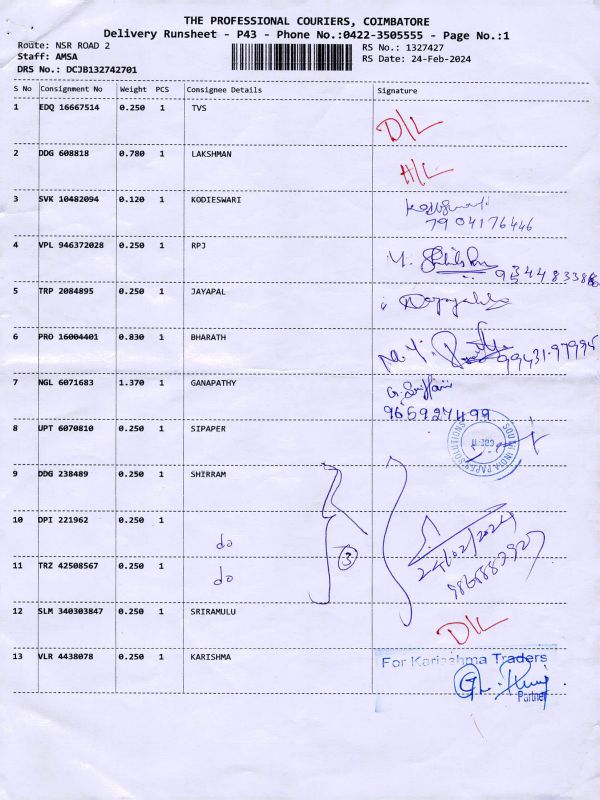 THE PROFESSIONAL COURIERS, COIMBATORE
Delivery Runsheet - P43 - Phone No.:0422-3505555 - Page No.:1
Route: NSR ROAD 2 RS No.: 1327427
Staff: AMSA RS Date: 24-Feb-2024
DRS No.: DCJB132742701
S No Consignment No Weight PCS Consignee Details Signature
1 EDQ 16667514 0.250 1 TVS
D/L
2 DDG 608818 0.780 1 LAKSHMAN
H/L
3 SVK 10482094 0.120 1 KODIESWARI
7904176446
4 VPL 946372028 0.250 1 RPJ
5 TRP 2084895 0.250 1 JAYAPAL
6 PRO 16004401 0.830 1 BHARATH
99431-97995
7 NGL 6071683 1.370 1 GANAPATHY
9659274499
8 UPT 6070810 0.250 1 SIPAPER
SOUTH INDIA PAPER SOLUTIONS
9 DDG 238489 0.250 1 SHIRRAM
10 DPI 221962 0.250 1 do
3
24/02/2024
11 TRZ 42508567 0.250 1 do
12 SLM 340303847 0.250 1 SRIRAMULU
D/L
13 VLR 4438078 0.250 1 KARISHMA
For Karishma Traders
Partner